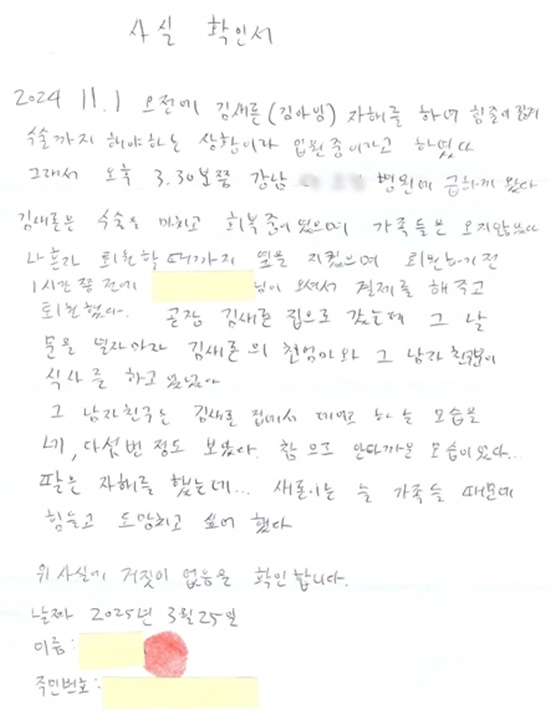 사실 확인서
2024 11.1 오전에 김새론(김아임) 자해를 하여 힘줄이 끊겨
수술까지 해야하는 상황이라 입원중이라고 하였다
그래서 오후 3.30분쯤 강남 병원에 급하게 왔다
김새론은 수술을 마치고 회복중이었으며 가족들은 오지않았다
나혼자 퇴원할때까지 옆을 지켰으며 퇴원하기전
1시간쯤 전에 님이 오셔서 결제를 해주고
퇴원했다. 곧장 김새론 집으로 갔는데 그 날
문을 열자마자 김새론의 친엄마와 그 남자친구분이
식사를 하고 있었다
그 남자친구는 김새론 집에서 데이트 하는 모습을
네, 다섯번 정도 보았다. 참으로 안타까운 모습이었다...
팔은 자해를 했는데... 새론이는 늘 가족들 때문에
힘들고 도망치고 싶어 했다
위 사실에 거짓이 없음을 확인합니다.
날짜 2025년 3월 25일
이름:
주민번호: